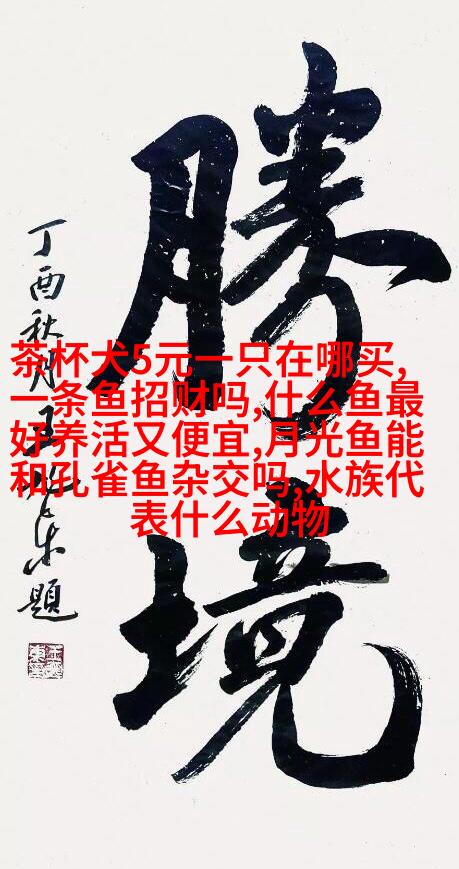 勝境
丁酉秋月王題
茶杯犬5元一只在哪买,
一条鱼招财吗,什么鱼最
好养活又便宜,月光鱼能
和孔雀鱼杂交吗,水族代
表什么动物